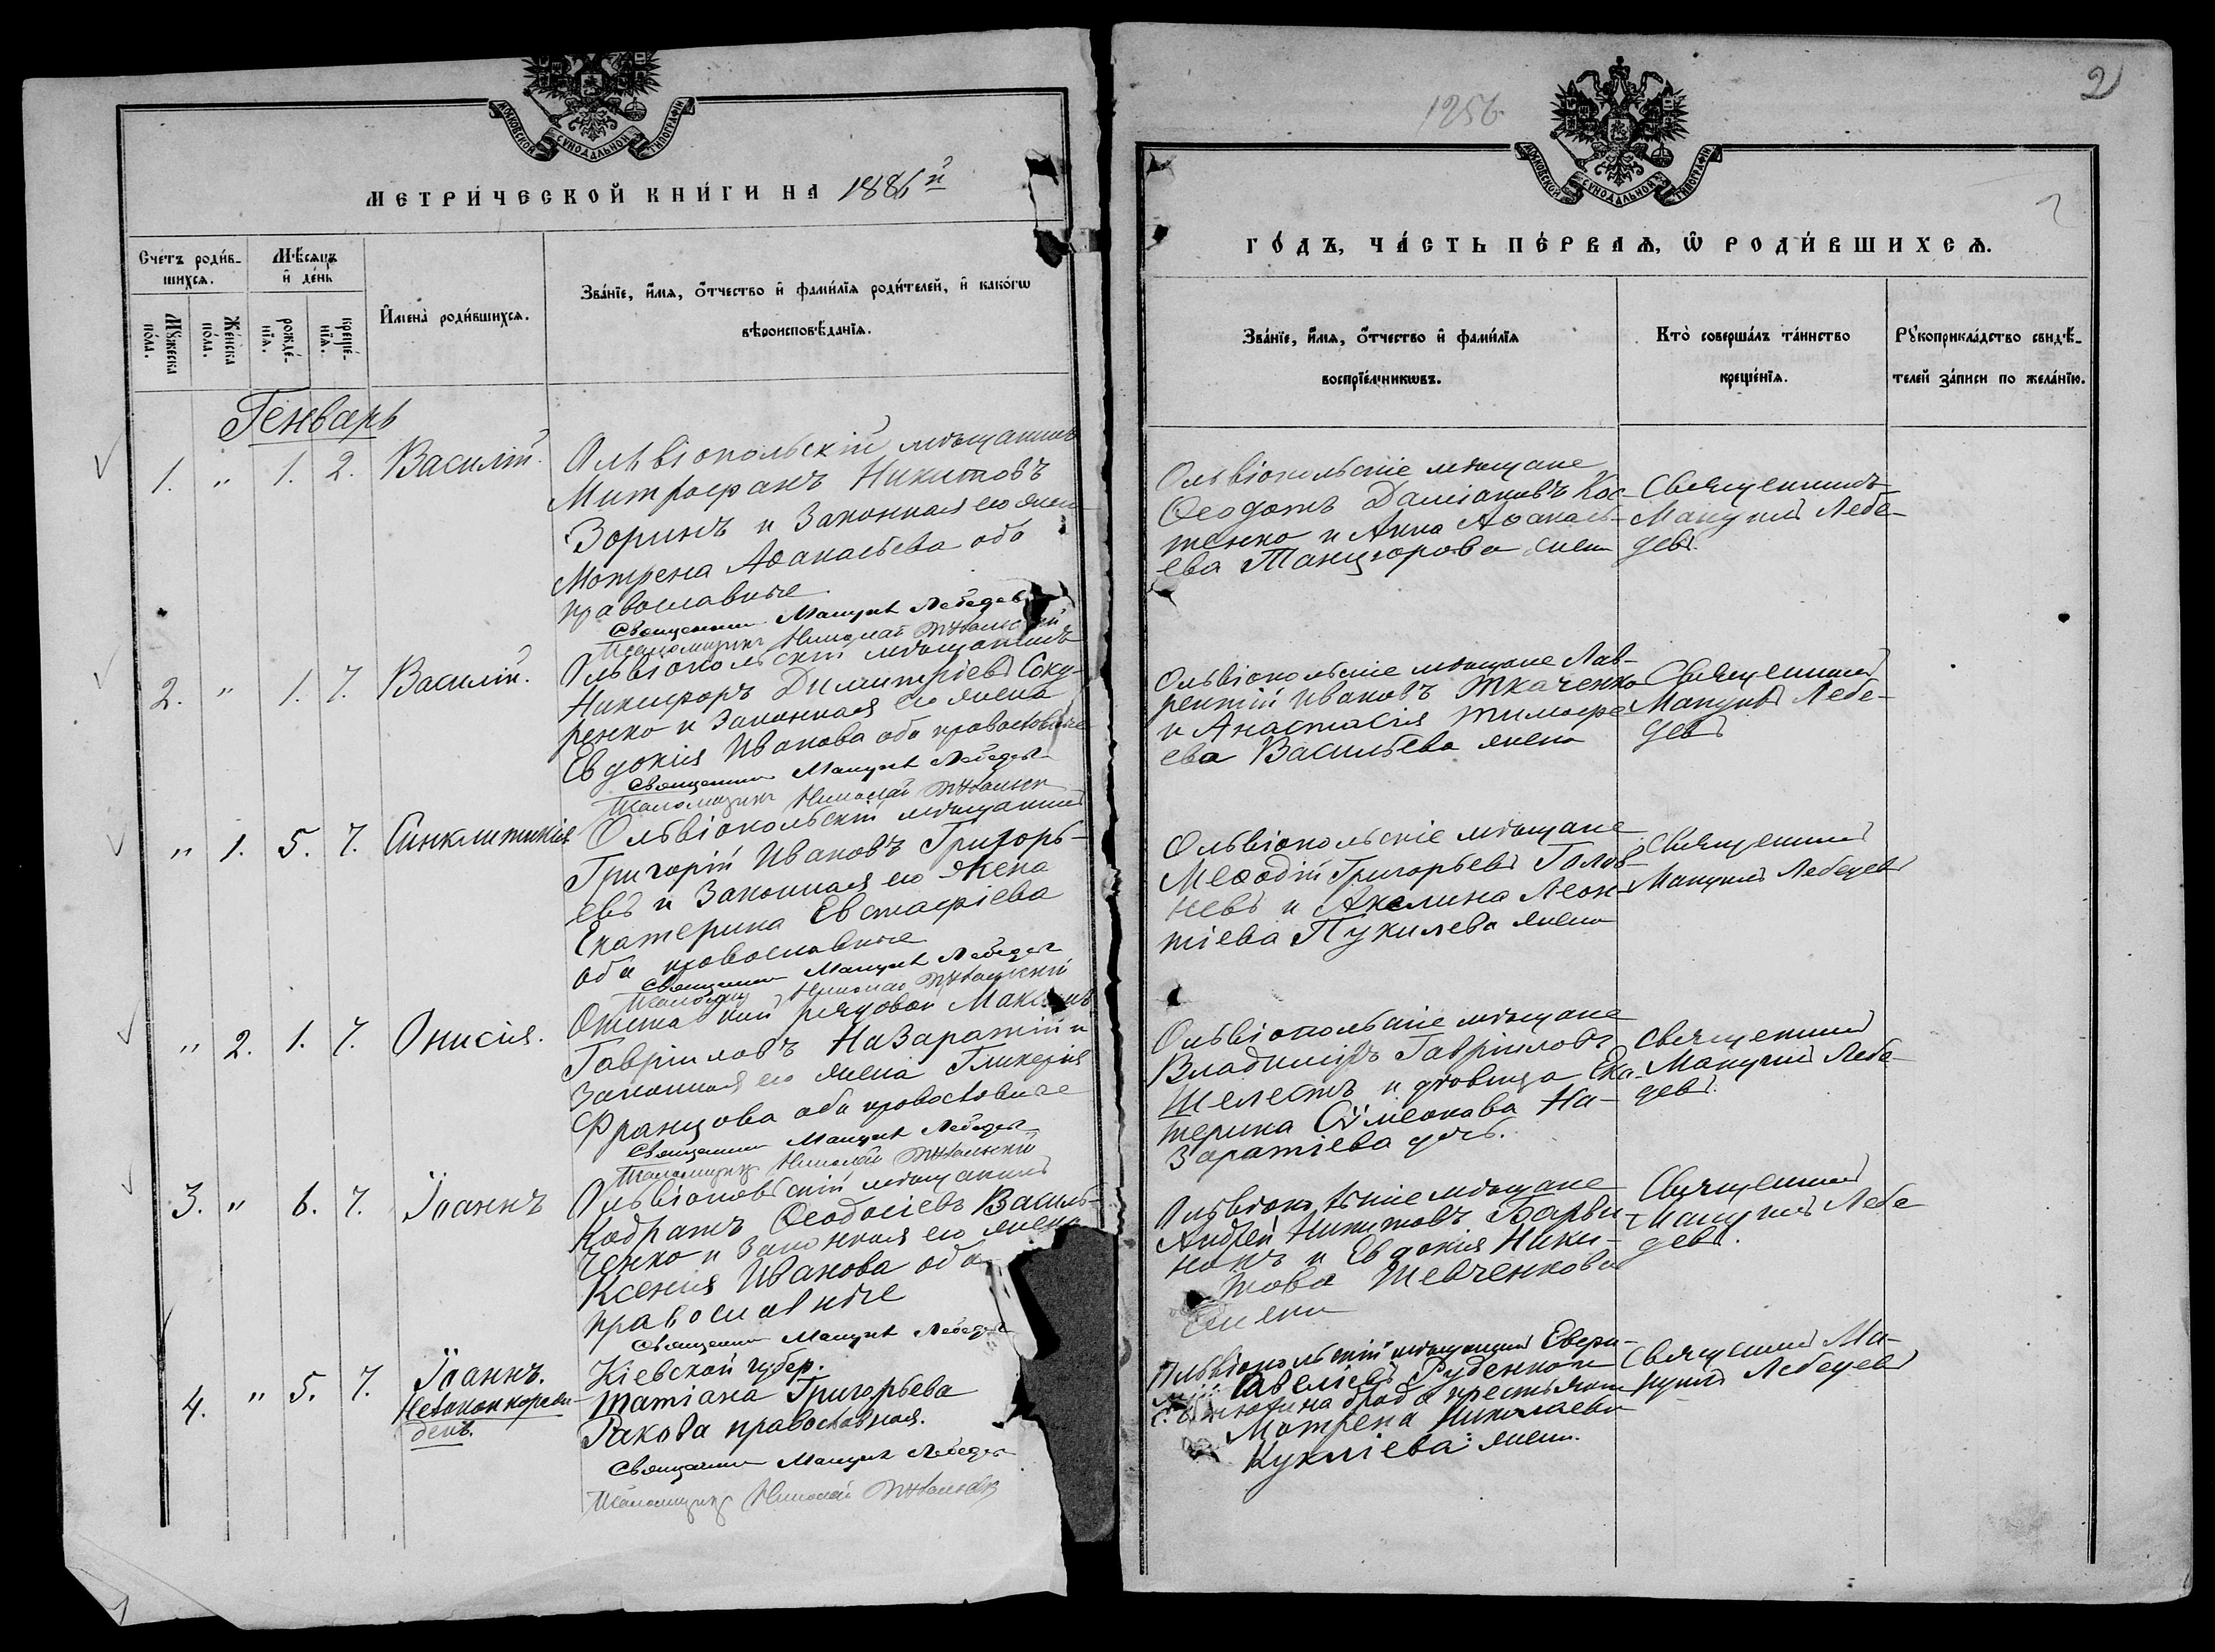 МОСКОВСКОЙ СѴНОДАЛЬНОЙ ТИПОГРАФІИ
МЕТРИ́ЧЕСКОЙ КНИ́ГИ НА 1886й
Сче́тъ роди́в-
шихсѧ.
Мѣ́сѧцъ
и҆ де́нь
И҆мена̀ роди́вшихсѧ.
Зва́нїе, и҆́мѧ, ѻ҆́тчество и҆ фами́лїѧ роди́телей, и҆ како́гѡ
вѣроисповѣ́данїѧ.
Мꙋ́жеска
по́ла.
Же́нска
по́ла.
рожде́-
нїѧ.
креще́-
нїѧ.
Генварь
1. " 1. 2. Василій.
Ольвіопольскій мѣщанинъ
Митрофанъ Никитовъ
Зоринъ и Законная его жена
Мотрена Аѳанасьева оба
православные
Священникъ Мануилъ Лебедевъ
Николай
2. " 1. 7. Василій.
Ольвіопольскій мѣщанинъ
Никифоръ Димитріевъ Соку-
ренко и Законная его жена
Евдокія Иванова оба православные
Священникъ Мануилъ Лебедевъ
Николай
" 1. 5. 7. Синклитикія
Ольвіопольскій мѣщанинъ
Григорій Ивановъ Григорь-
евъ и Законная его жена
Екатерина Евстафіева
оба православные
Священникъ Мануилъ Лебедевъ
Николай
" 2. 1. 7. Онисія.
Отставной рядовой Максимъ
Гавріиловъ Назаратій и
законная его жена Гликерія
Францова оба православные
Священникъ Мануилъ Лебедевъ
Николай
3. " 6. 7. Іоаннъ
Ольвіопольскій мѣщанинъ
Кодратъ Ѳеодосіевъ Василь-
ченко и Законная его жена
Ксенія Иванова оба
православные
Священникъ Мануилъ Лебедевъ
4. " 5. 7. Іоаннъ.
Незаконнорож-
денъ.
Кіевской губер.
Татіана Григорьева
Ракова православная.
Священникъ Мануилъ Лебедевъ
Николай
1256
2
МОСКОВСКОЙ СѴНОДАЛЬНОЙ ТИПОГРАФІИ
ГО́ДЪ, ЧА́СТЬ ПЕ́РВАѦ, Ѡ҆ РОДИ́ВШИХСѦ.
Зва́нїе, и҆́мѧ, ѻ҆́тчество и҆ фами́лїѧ
воспрїе́мникѡвъ.
Кто̀ соверша́лъ та́инство
креще́нїѧ.
Рꙋкоприкла́дство свидѣ́-
телей за́писи по жела́нїю.
Ольвіопольскіе мѣщане
Ѳеодотъ Даміановъ Кос-
тенко и Анна Аѳанась-
ева Танцюрова жена
Священникъ
Мануилъ Лебе-
девъ.
Ольвіопольскіе мѣщане Лав-
рентій Ивановъ Ткаченко
и Анастасія Тимофе-
ева Васильева жена
Священникъ
Мануилъ Лебе-
девъ
Ольвіопольскіе мѣщане
Меѳодій Григорьевъ Голов-
невъ и Акилина Леон-
тіева Пукилева жена
Священникъ
Мануилъ Лебедевъ
Ольвіопольскіе мѣщане
Владиміръ Гавріиловъ
Шелестъ и дѣвица Ека-
терина Сѵмеонова На-
заратіева дочь.
Священникъ
Мануилъ Лебе-
девъ.
Ольвіопольскіе мѣщане
Андрей Никитовъ Барви-
нокъ и Евдокія Ники-
това Шевченкова
жена
Священникъ
Мануилъ Лебе
девъ.
Ольвіопольскій мѣщанинъ
Савеліевъ Руденко и
брода крестьянка
Мотрена Николаева
Куклієва жена.
Священникъ Ма-
нуилъ Лебедевъ